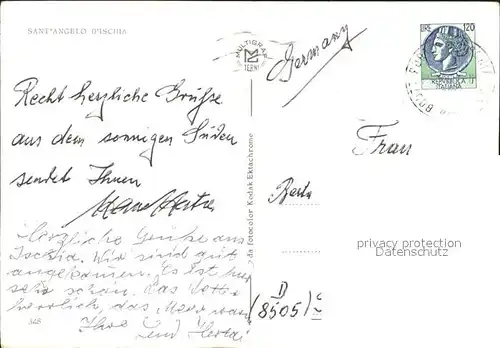 SANT'ANGELO D'ISCHIA
Recht herzliche Grüße
aus dem sonnigen Süden
sendet Ihnen
Herzliche Grüße aus
Ischia. Wir sind gut
angekommen. Es ist hier
sehr schön. Das
herrlich, das Meer
Ihre
und Herta
348
da fotocolor Kodak Ektachrome
MULTIGRAF
TERNI
Germany
LIRE 120
REPUBBLICA
ITALIANA
Frau
Berta
privacy protection
Datenschutz
D
(8505)